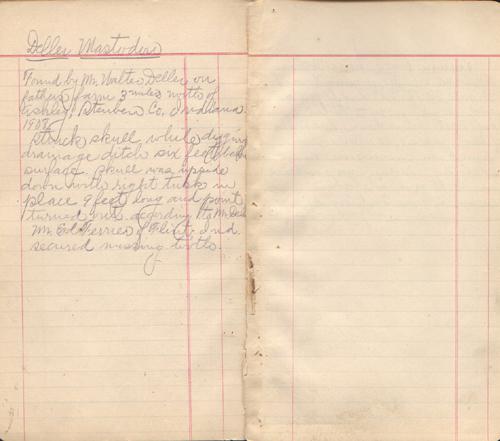 Deller Mastodon
Found by Mr. Walter Deller on
fathers farm 3 miles north of
Ashley, Steuben Co, Indiana.
Struck skull while digging
drainage ditch six feet below
surface. Skull was upside
down with right tusk in
place 9 feet long and point
turned out according to Mr. Deller
Mr. Ed Ferrier of Flint, Ind.
secured missing tooth.